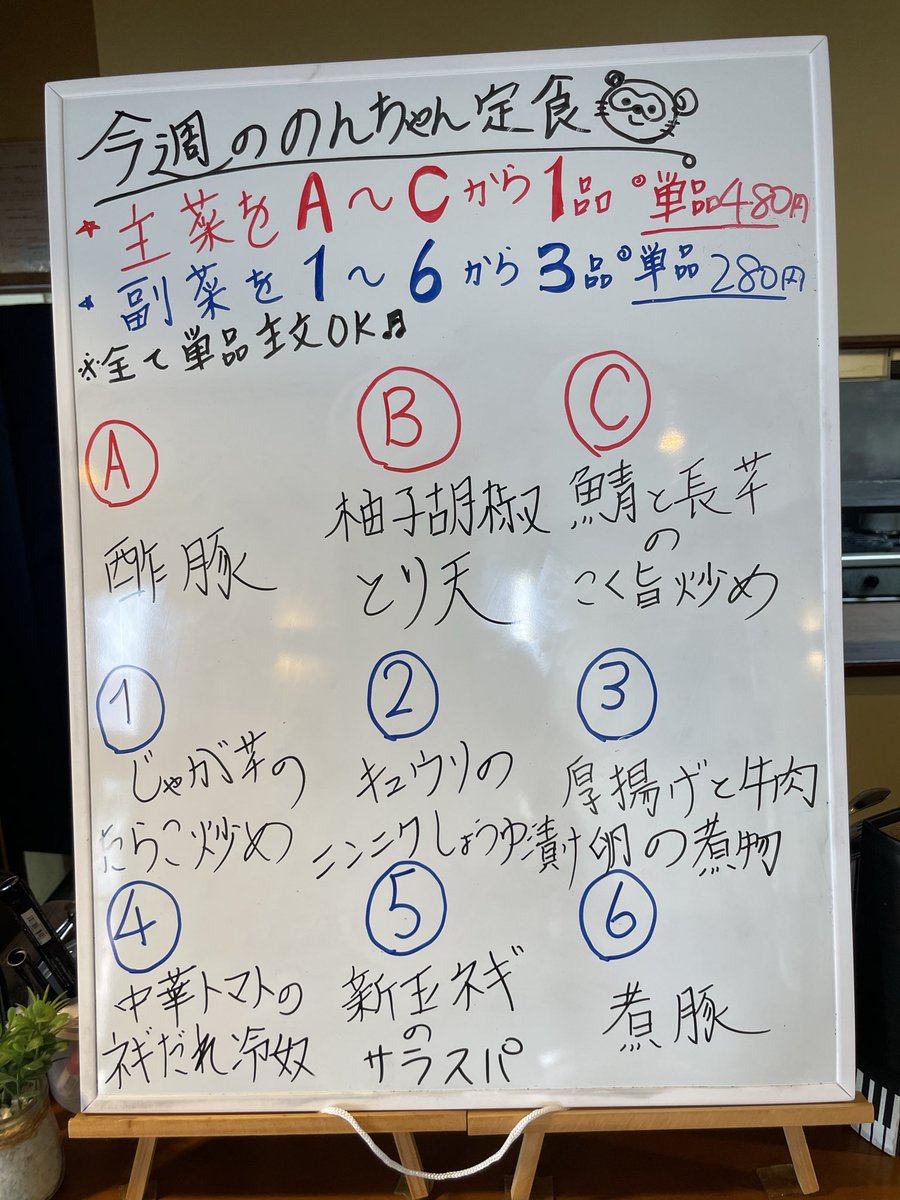 今週ののんちゃん定食
*主菜をA～Cから1品 ◎単品480円
*副菜を1～6から3品◎単品280円
※全て単品注文OK♬
A
酢豚
B
柚子胡椒
とり天
C
鯖と長芋
の
こく旨炒め
①
じゃが芋の
たらこ炒め
②
キュウリの
ニンニクしょうゆ漬け
③
厚揚げと牛肉
卵の煮物
④
中華トマトの
ネギだれ冷奴
⑤
新玉ネギ
の
サラスパ
⑥
煮豚